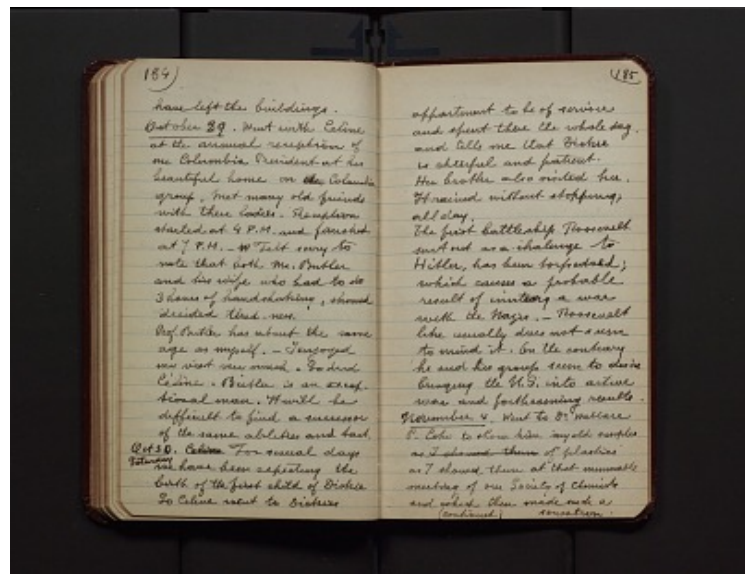 184
have left the buildings.
October 29. Went with Celine
at the annual reception of
our Columbia President at his
beautiful home on the Columbia
group. Met many old friends
with there ladies. Reception
started at 4 P.M. and finished
at 7 P.M. — W Felt sorry to
note that both Mr. Butler
and his wife who had to do
3 hours of handshaking, showed
decided tired
Prof Butler has about the same
age as myself. — I enjoyed
my visit very much. So did
Céline. Butler is an excep-
tional man. It will be
difficult to find a successor
of the same abilities and tact.
Oct 30. Celine For several days
Saturday
we have been expecting the
birth of the first child of Dickie
So Celine went to Dickies
185
appartment to be of service
and spent there the whole day.
and tells me that Dickie
is cheerful and patient.
Her brother also visited her.
It rained without stopping,
all day.
The first battleship Roosevelt
sent out as a chalenge to
Hitler, has been torpedoed;
which causes a probable
result of inviting a war
with the Nazis. — Roosevelt
like usually does not seem
to mind it. On the contrary
he and his group seem to desire
bringing the U.S. into active
war and forthcoming results.
November 4. Went to Dr Wallace
P. Cohoe to show him my old samples
as I showed them of plastics
as I showed them at that memorable
meeting of our Society of Chemists
and which then made such a
(continued) sensation.